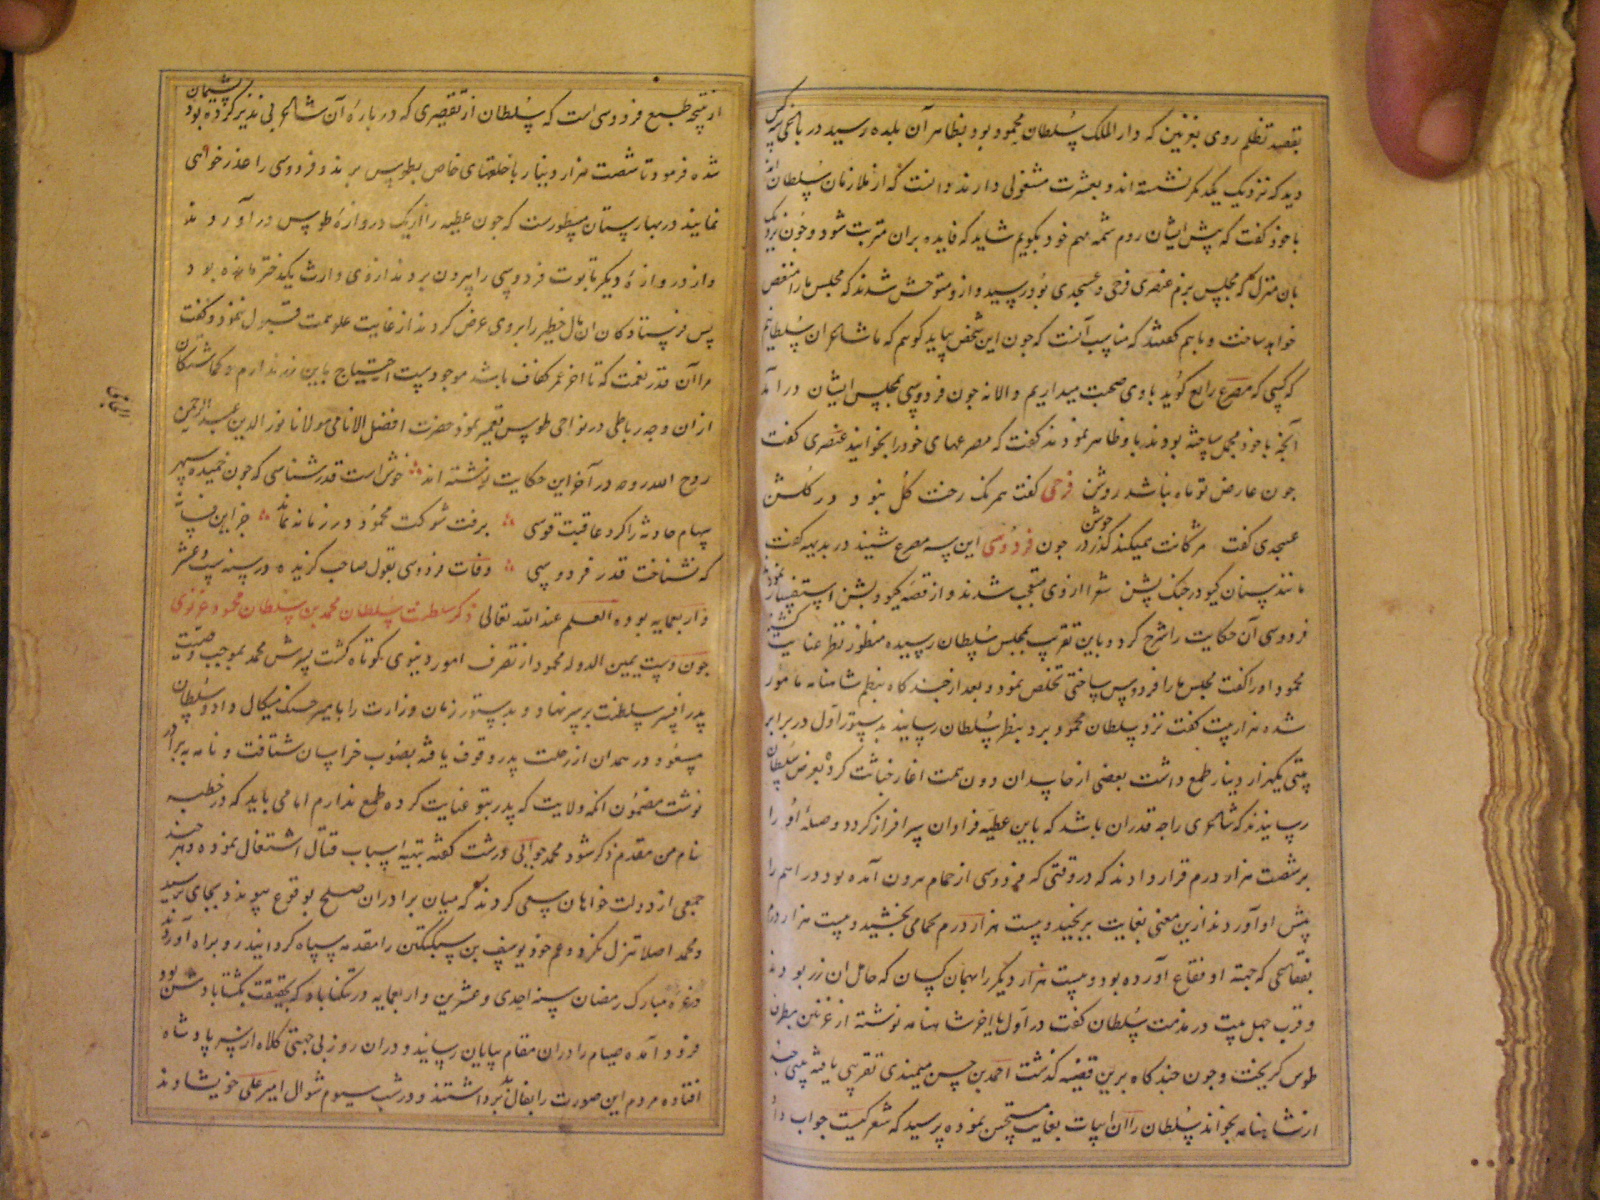 بقصد تظلم روی بغزنین که دار الملک سلطان محمود بود بظاهر آن بلده رسید در باغی سه کس
دید که نزدیک یکدیگر نشسته اند و بعشرت مشغولی دارند دانست که از ملازمان سلطان اند
با خود گفت که پیش ایشان روم شمه مهم خود بگویم شاید که فایده بران مترتب شود و چون نزدیک
بان منزل که مجلس بزم عنصری فرخی و عسجدی بود رسید و ازو متوحش شدند که مجلس ما را منغص
خواهد ساخت و باهم گفتند که مناسب آنست که چون این شخص بیاید گوییم که ما شاعران سلطانیم
که کسی که مصرع رابع گوید با وی صحبت میداریم و الا نه چون فردوسی بمجلس ایشان در آمد
آنچه با خود مجمل ساخته بودند باو ظاهر نمودند گفت که مصرعهای خود را بخوانید عنصری گفت
چون عارض تو ماه نباشد روشن فرخی گفت همرنگ رخت گل نبود در گلشن
عسجدی گفت مژگانت همیکند گذر در جوشن چون فردوسی این سه مصرع شنید در بدیهه گفت
مانند سنان گیو در جنگ پشن شعرا از وی متعجب شدند و از قصه گیو و پشن استفسار نمودند
فردوسی آن حکایت را شرح کرد و باین تقریب بمجلس سلطان رسیده منظور نظر عنایت گشت
محمود او را گفت مجلس ما را فردوس ساختی تخلص نمود و بعد از چند گاه بنظم شاهنامه مامور
شده هزار بیت گفت نزد سلطان محمود برد بنظر سلطان رسانید بدستور اول در برابر
بیتی یکهزار دینار طمع داشت بعضی از حاسدان دون همت اغار خباثت کرده بعرض سلطان
رسانیدند که شاعری را چه قدر ان باشد که باین عطیه فراوان سرافراز گردد و صله او را
بر شصت هزار درم قرار دادند که در وقتی که فردوسی از حمام بیرون آمده بود دراهم را
پیش او آوردند ازین معنی بغایت برنجید و بیست هزار درم بحمامی بخشید و بیست هزار درم
بفقاعی که جهته او فقاع آورده بود و بیست هزار دیگر را بهمان کسان که حامل ان زر بودند
و قرب چهل بیت در مذمت سلطان گفت در اول یا اخر شاهنامه نوشته از غزنین بطرف
طوس گریخت و چون چند گاه برین قضیه گذشت احمد بن حسن میمندی تقریبی یافته بیتی چند
از شاهنامه بخواند سلطان را آن ابیات بغایت مستحسن نموده پرسید که شعر کیست جواب داد
از نتیجه طبع فردوسی است که سلطان از تقصیری که در باره آن شاعر بی نظیر کرده بود پشیمان
شده فرمود تا شصت هزار دینار با خلعتهای خاص بطوس برند و فردوسی را عذر خواهی
نمایند در بهارستان مسطورست که چون عطیه را از یک دروازه طوس در آوردند
و از دروازه دیگر تابوت فردوسی را بیرون بردند از وی وارث یکدختر مانده بود
پس فرستادگان ان مال خطیر را بر وی عرض کردند از غایت علو همت قبول ننمود و گفت
مرا آن قدر نعمت که تا اخر عمر کفاف باشد موجودست احتیاج باین زر ندارم و گماشتگان
ازان وجه رباطی در نواحی طوس تعمیر نمود حضرت افضل الانامی مولانا نور الدین عبد الرحمن
روح الله روحه در آخر این حکایت نوشته اند خوش است قدر شناسی که چون خمیده سپهر
سهام حادثه را کرد عاقبت قوسی برفت شوکت محمود در زمانه نماند جز این فسانه
که نشناخت قدر فردوسی وفات فردوسی بقول صاحب گزیده در سنه ست عشر
و اربعمایه بوده العلم عند الله تعالی ذکر سلطنت سلطان محمد بن سلطان محمود غزنوی
چون دست یمین الدوله محمود از تصرف امور دنیوی کوتاه گشت پسرش محمد بموجب وصیت
پدر افسر سلطنت بر سر نهاد و بدستور زمان وزارت را بامیر حسنک میکال داد و سلطان
مسعود در همدان از رحلت پدر وقوف یافته بصوب خراسان شتافت و نامه به برادر
نوشت مضمون انکه ولایت که پدر بتو عنایت کرده طمع ندارم اما می باید که در خطبه
نام من مقدم ذکر شود محمد جوابی درشت گفته بتهیه اسباب قتال اشتغال نموده و هر چند
جمعی از دولت خواهان سعی کردند که میان برادران صلح بوقوع پیوندد بجای نرسید
و محمد اصلا تنزل نکرد و عم خود یوسف بن سبکتگین را مقدمه سپاه گردانید و رو براه آورد
در غره مبارک رمضان سنه احدی و عشرین و اربعمایه در تکناباد که بحقیقت نکبتاباد شدن بود
فرود آمده صیام را دران مقام بپایان رسانید و دران روز بی جهتی کلاه از سر پادشاه
افتاده مردم این صورت را بفال بد برداشتند و در شب سیوم شوال امیر علی خویشاوند